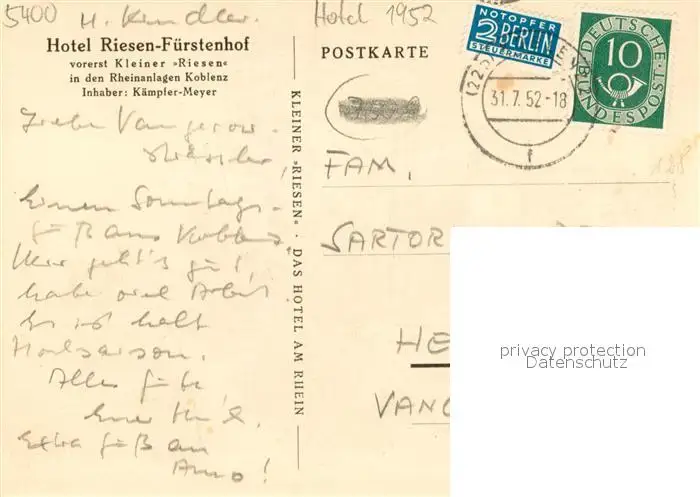 5400 H. Kindler. Hotel 1952
Hotel Riesen-Fürstenhof
vorerst Kleiner »Riesen«
in den Rheinanlagen Koblenz
Inhaber: Kämpfer-Meyer
Einen Sonntags-
gruß aus Koblenz,
Hier geht's gut,
habe viel Arbeit
Es ist halt
Hochsaison.
Alles Gute
Euer
Extra Grüß an
Anno!
KLEINER »RIESEN« · DAS HOTEL AM RHEIN
POSTKARTE
NOTOPFER
2 BERLIN
STEUERMARKE
DEUTSCHE
BUNDESPOST
10
31.7.52-18
f
FAM,
SARTOR
HE
VANG
privacy protection
Datenschutz